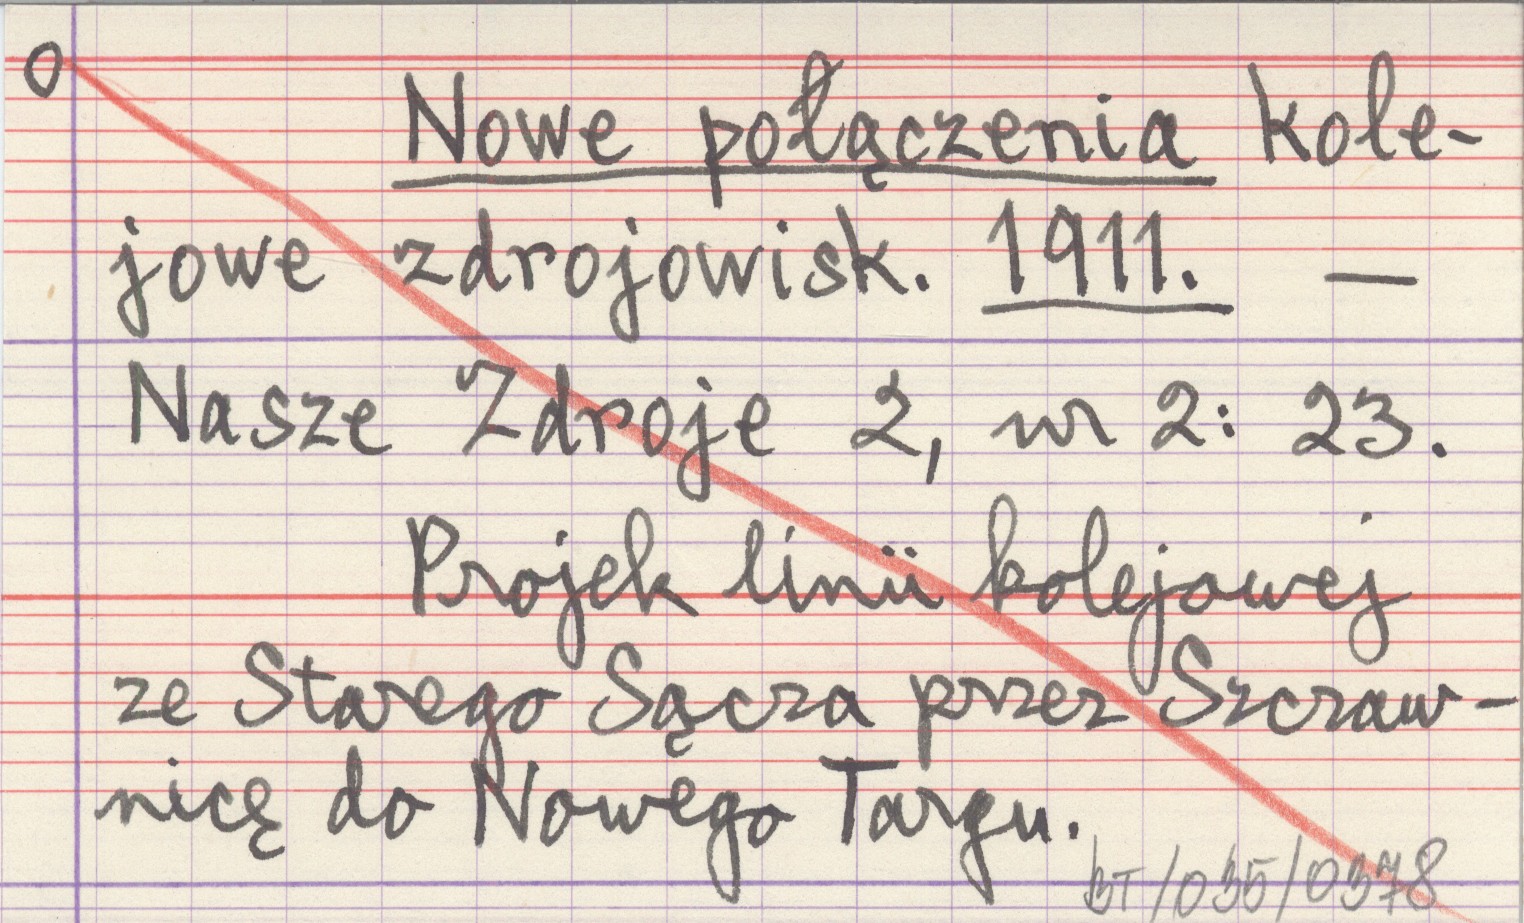 O Nowe połączenia kole-
jowe zdrojowisk. 1911. —
Nasze Zdroje 2, nr 2: 23.
Projek linii kolejowej
ze Starego Sącza przez Szczaw-
nicę do Nowego Targu.
BT/035/0378